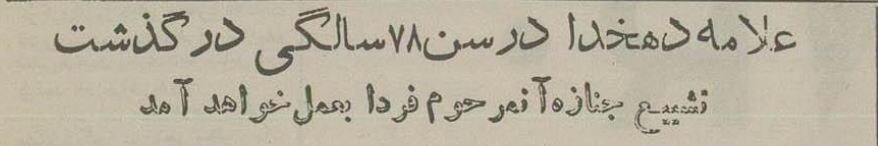 علامه دهخدا در سن ۷۸ سالگی درگذشت
تشییع جنازه آنمرحوم فردا بعمل خواهد آمد